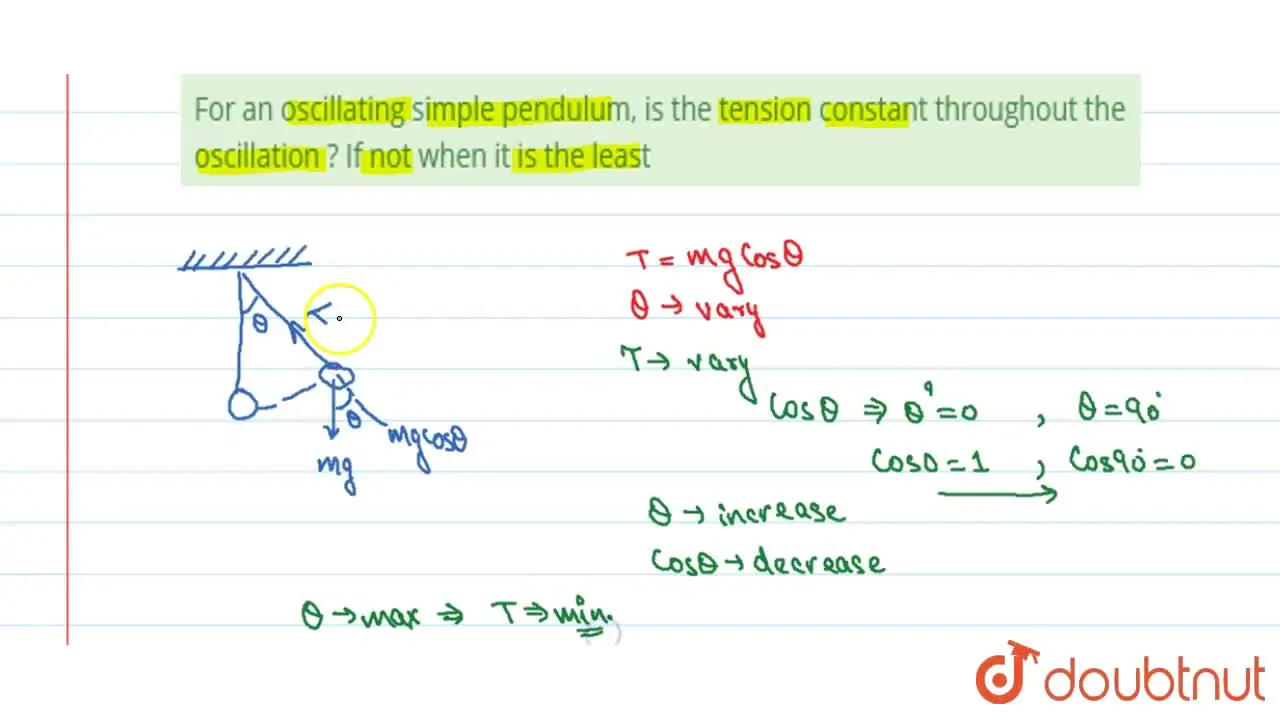 For an oscillating simple pendulum, is the tension constant throughout the
oscillation ? If not when it is the least
T = mg Cosθ
θ → vary
T → vary
θ
θ
mg cosθ
mg
Cosθ ⇒ θ° = 0 , θ = 90°
Cos0 = 1 , Cos90° = 0
θ → increase
Cosθ → decrease
θ → max ⇒ T ⇒ min.
doubtnut